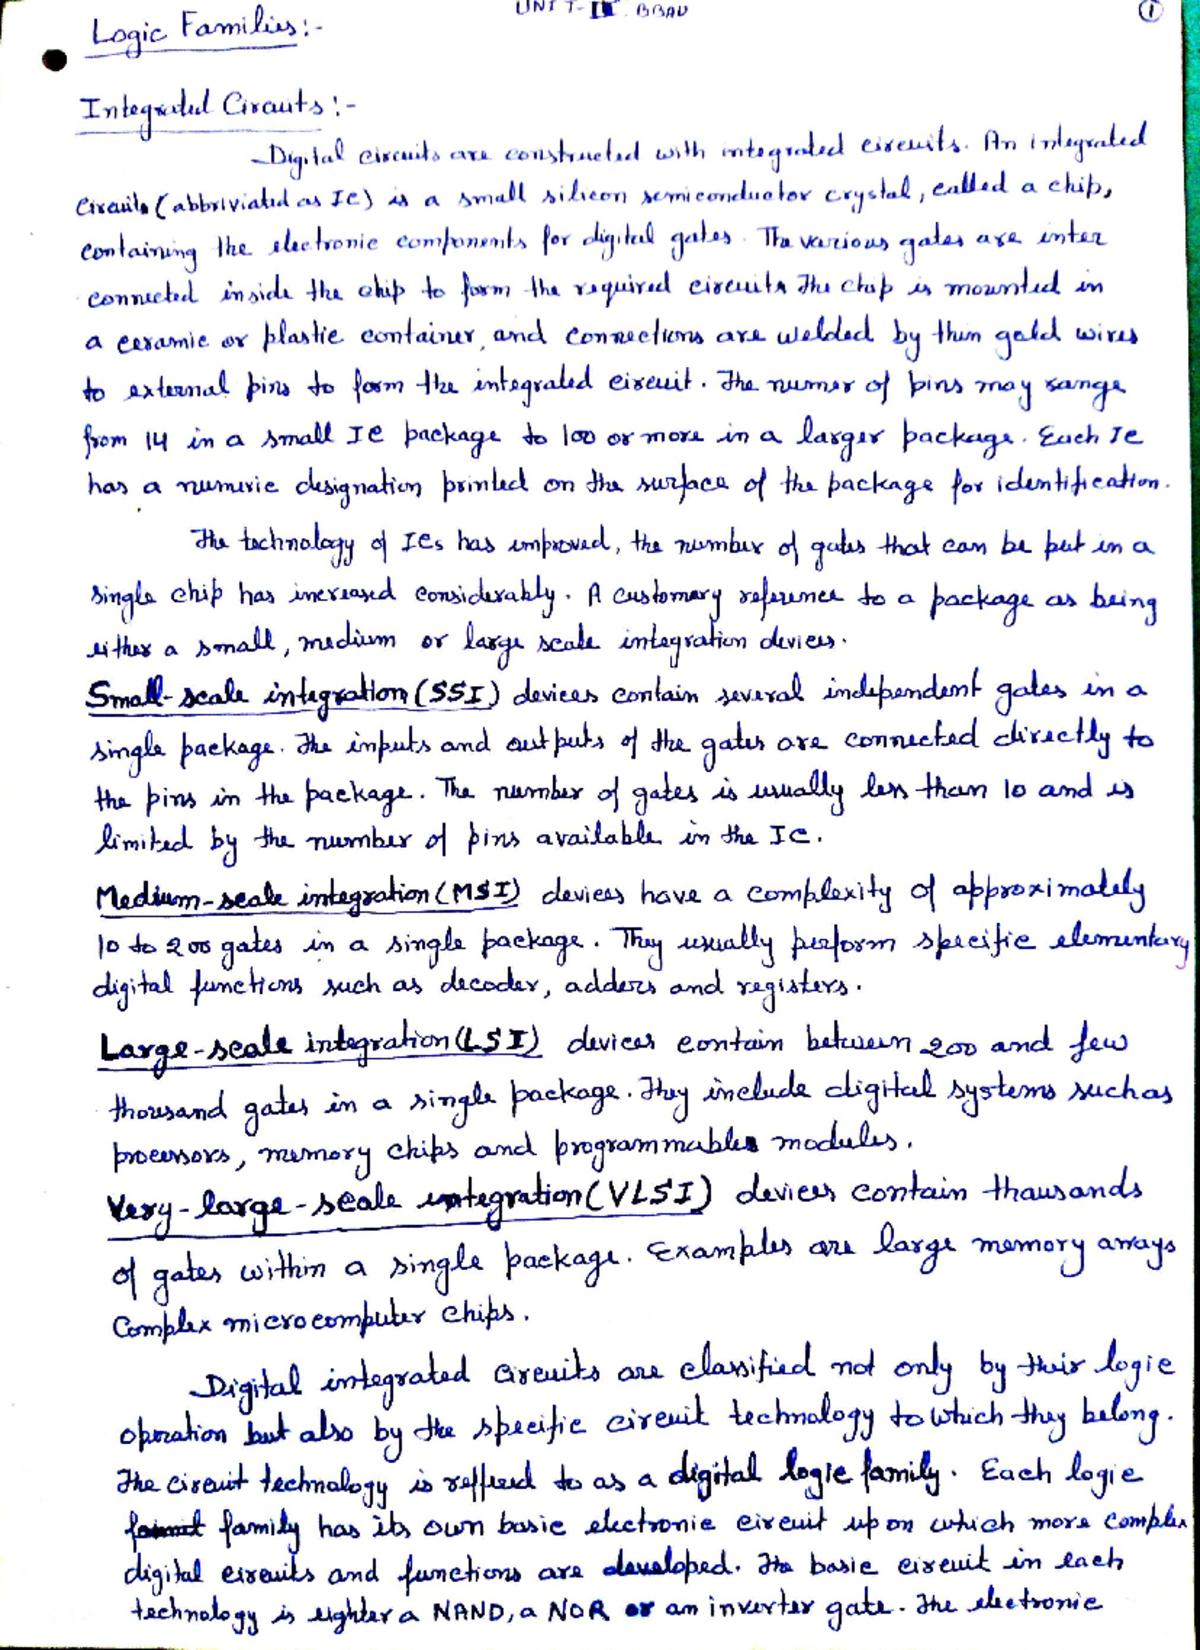 UNIT-II BBAU
1
Logic Families:-
Integrated Circuits:-
Digital circuits are constructed with integrated circuits. An integrated
circuits (abbriviated as IC) is a small silicon semiconductor crystal, called a chip,
containing the electronic components for digital gates. The various gates are inter
connected inside the chip to form the required circuits The chip is mounted in
a ceramic or plastic container, and connections are welded by thin gold wires
to external pins to form the integrated circuit. The numer of pins may range
from 14 in a small IC package to 100 or more in a larger package. Each IC
has a numeric designation printed on the surface of the package for identification.
The technology of ICs has improved, the number of gates that can be put in a
single chip has increased considerably. A customary reference to a package as being
either a small, medium or large scale integration devices.
Small-scale integration (SSI) devices contain several independent gates in a
single package. The inputs and outputs of the gates are connected directly to
the pins in the package. The number of gates is usually less than 10 and is
limited by the number of pins available in the IC.
Medium-scale integration (MSI) devices have a complexity of approximately
10 to 200 gates in a single package. They usually perform specific elementary
digital functions such as decoder, adders and registers.
Large-scale integration (LSI) devices contain between 200 and few
thousand gates in a single package. They include digital systems such as
processors, memory chips and programmable modules.
Very-large-scale integration (VLSI) devices contain thausands
of gates within a single package. Examples are large memory arrays
Complex microcomputer chips.
Digital integrated circuits are classified not only by their logic
operation but also by the specific circuit technology to which they belong.
The circuit technology is reffered to as a digital logic family. Each logic
family has its own basic electronic circuit upon which more complex
digital circuits and functions are developed. The basic circuit in each
technology is eighter a NAND, a NOR or an inverter gate. The electronic